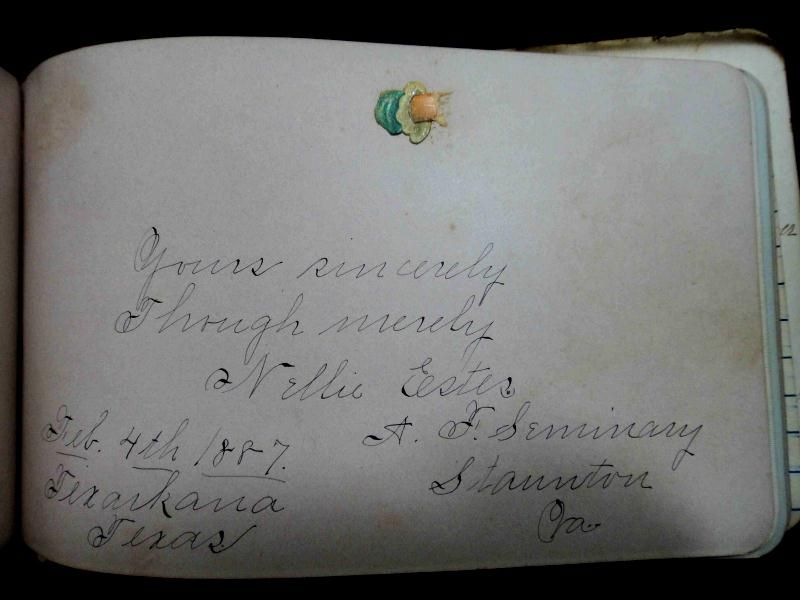 Yours sincerely
Though merely
Nellie Estes
A. F. Seminary
Staunton
Va.
Feb. 4th 1887.
Texarkana
Texas